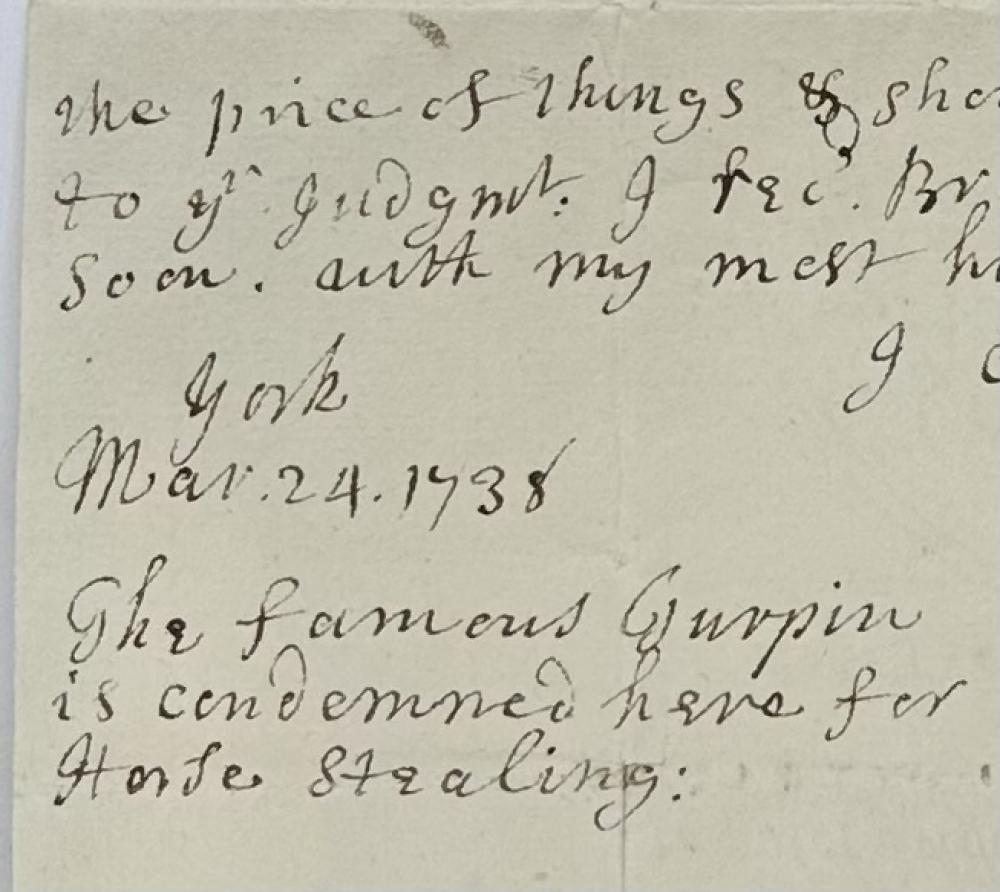 the price of things & sho
to yr Judgmt: I rec'. Br
soon. with my most hu
York I
Mar. 24. 1738
The famous Turpin
is condemned here for
Horse Stealing: